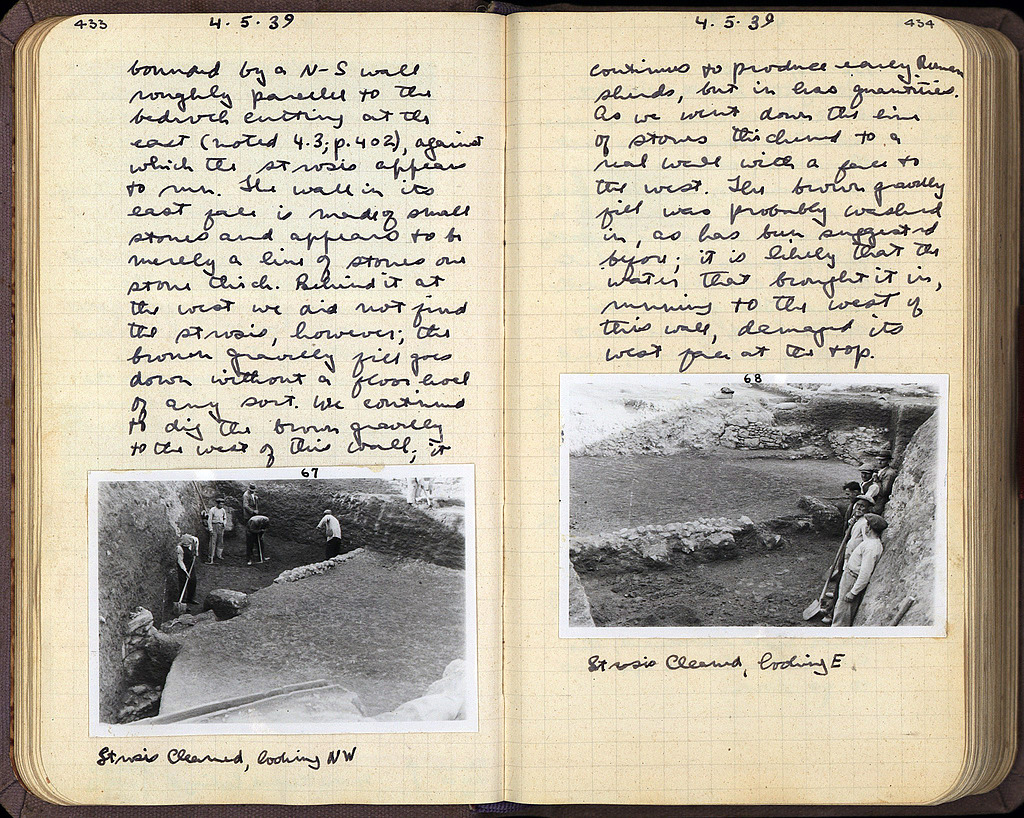 433
4.5.39
bounded by a N-S wall
roughly parallel to the
bedrock cutting at the
east (noted 4.3, p.402), against
which the strosis appears
to run. The wall in its
east face is made of small
stones and appears to be
merely a line of stones one
stone thick. Behind it at
the west we did not find
the strosis, however; the
brown gravelly fill goes
down without a floor level
of any sort. We continued
to dig the brown gravelly
to the west of this wall; it
67
Strosis Cleaned, looking NW
4.5.39
434
continues to produce early Roman
sherds, but in less quantities.
As we went down the line
of stones thickened to a
real wall with a face to
the west. The brown gravelly
fill was probably washed
in, as has been suggested
before; it is likely that the
water that brought it in,
running to the west of
this wall, damaged its
west face at the top.
68
Strosis Cleaned, looking E